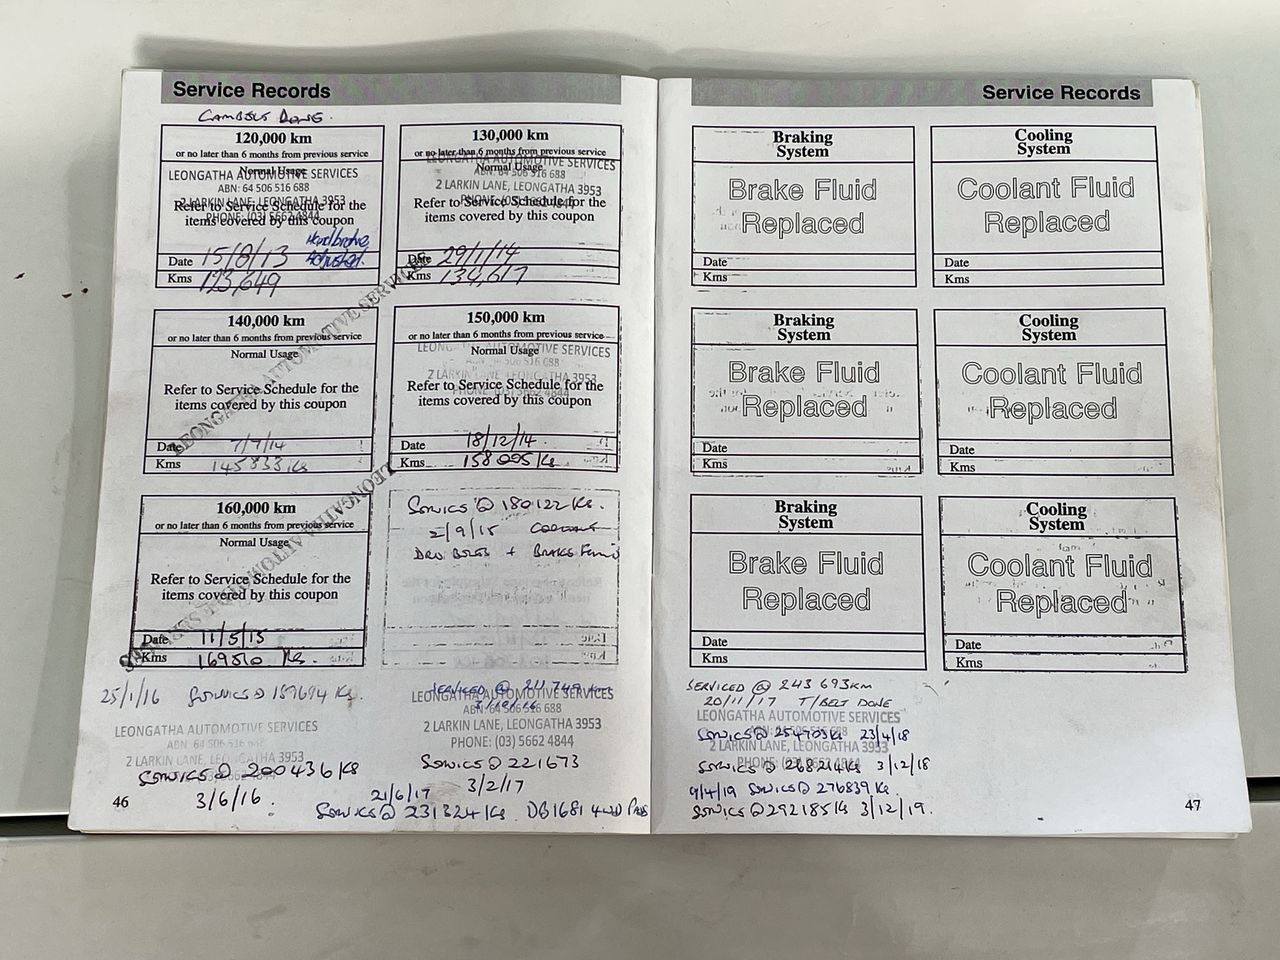 Service Records
CAMBELT DONE.
120,000 km
or no later than 6 months from previous service
Normal Usage
LEONGATHA AUTOMOTIVE SERVICES
ABN: 64 506 516 688
2 LARKIN LANE, LEONGATHA 3953
Refer to Service Schedule for the
PHONE: (03) 5662 4844
items covered by this coupon
Handbrake
Adjusted.
Date 15/8/13
Kms 123,649
130,000 km
or no later than 6 months from previous service
Normal Usage
LEONGATHA AUTOMOTIVE SERVICES
ABN: 64 506 516 688
2 LARKIN LANE, LEONGATHA 3953
PHONE: (03) 5662 4844
Refer to Service Schedule for the
items covered by this coupon
Date 29/1/14
Kms 134,617
140,000 km
or no later than 6 months from previous service
Normal Usage
Refer to Service Schedule for the
items covered by this coupon
LEONGATHA AUTOMOTIVE SERVICES
Date 7/7/14
Kms 145833 Ks
150,000 km
or no later than 6 months from previous service
Normal Usage
LEONGATHA AUTOMOTIVE SERVICES
ABN: 64 506 516 688
2 LARKIN LANE, LEONGATHA 3953
Refer to Service Schedule for the
PHONE: (03) 5662 4844
items covered by this coupon
Date 18/12/14.
Kms 158005 Ks
160,000 km
or no later than 6 months from previous service
Normal Usage
Refer to Service Schedule for the
items covered by this coupon
LEONGATHA AUTOMOTIVE SERVICES
Date 11/5/15
Kms 169510 Ks.
SERVICE @ 180122 Ks.
2/9/15 COOLANT
DRV BELTS + BRAKE FLUID
25/1/16 SERVICE @ 189694 Ks.
LEONGATHA AUTOMOTIVE SERVICES
ABN: 64 506 516 688
2 LARKIN LANE, LEONGATHA 3953
SERVICE @ 200436 Ks
3/6/16.
SERVICED @ 211,749 Kms
LEONGATHA AUTOMOTIVE SERVICES
ABN: 64 506 516 688
2 LARKIN LANE, LEONGATHA 3953
PHONE: (03) 5662 4844
SERVICE @ 221673
3/2/17
21/6/17
SERVICE @ 231324 Ks. DB1681 4WD PADS
46
Service Records
Braking
System
Brake Fluid
Replaced
Date
Kms
Cooling
System
Coolant Fluid
Replaced
Date
Kms
Braking
System
Brake Fluid
Replaced
Date
Kms
Cooling
System
Coolant Fluid
Replaced
Date
Kms
Braking
System
Brake Fluid
Replaced
Date
Kms
Cooling
System
Coolant Fluid
Replaced
Date
Kms
SERVICED @ 243 693km
20/11/17 T/BELT DONE
LEONGATHA AUTOMOTIVE SERVICES
SERVICE @ 254703 Ks 23/4/18
2 LARKIN LANE, LEONGATHA 3953
SERVICE @ 268214 Ks 3/12/18
9/4/19 SERVICE @ 276839 Ks.
SERVICE @ 292185 Ks 3/12/19.
47